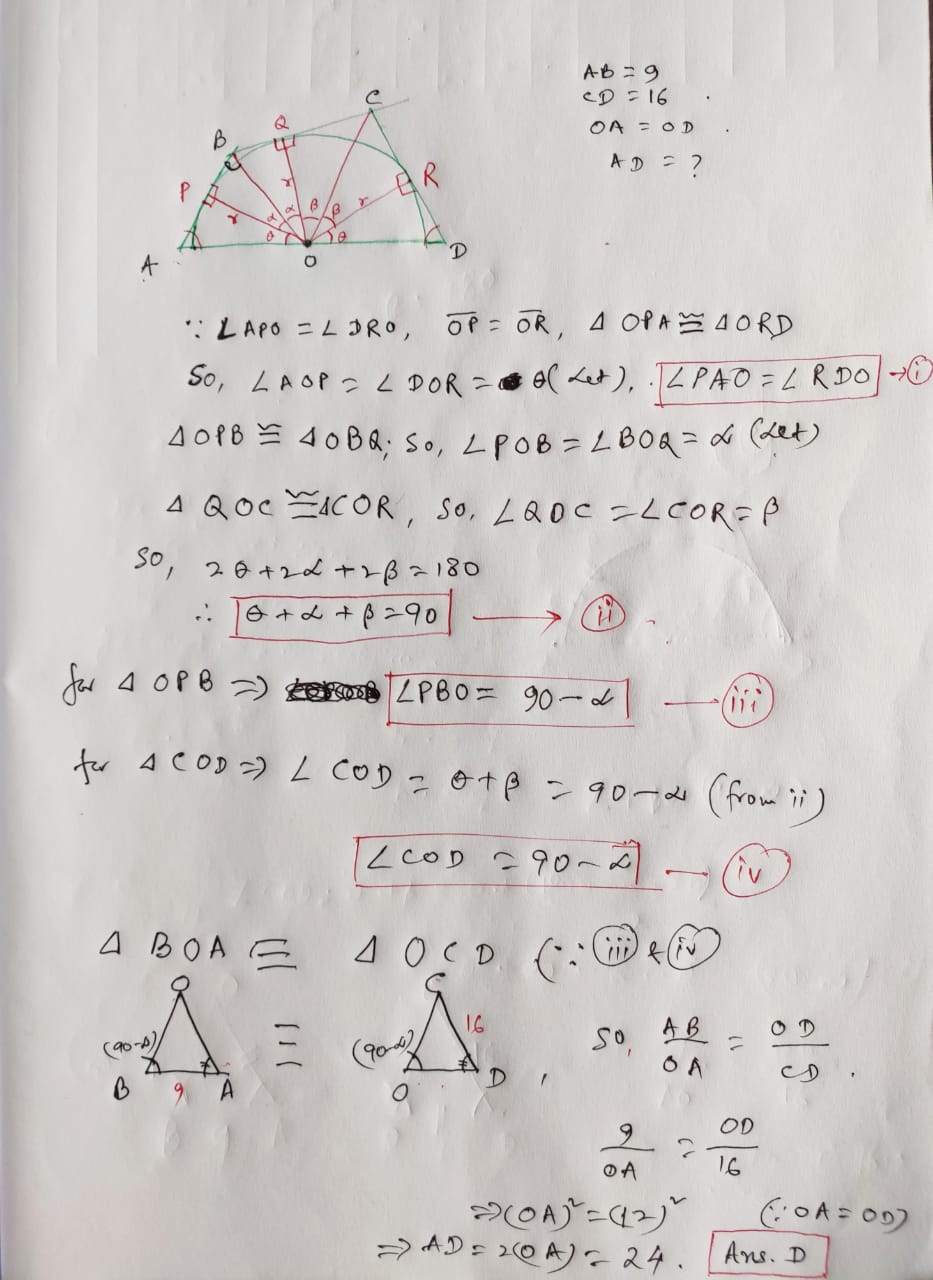 AB = 9
CD = 16 .
OA = OD .
AD = ?
C
Q
B
P
R
r
r
r
α
α
β
β
θ
θ
A
O
D
∵ ∠APO = ∠DRO, OP = OR, Δ OPA ≅ ΔORD
So, ∠AOP = ∠DOR = θ (Let), . ∠PAO = ∠RDO → i
ΔOPB ≅ ΔOBQ; So, ∠POB = ∠BOQ = α (Let)
Δ QOC ≅ ΔCOR, So, ∠QOC = ∠COR = β
So, 2θ + 2α + 2β = 180
∴ θ + α + β = 90 → ii
for Δ OPB ⇒ ∠PBO = 90 - α — iii
for Δ COD ⇒ ∠COD = θ + β = 90 - α (from ii)
∠COD = 90 - α — iv
Δ BOA ≡ Δ OCD (∵ iii & iv)
O
(90-α)
B 9 A
≡
C
16
(90-α)
O D ,
So, AB/OA = OD/CD .
9/OA = OD/16
⇒ (OA)² = (12)² (∵ OA = OD)
⇒ AD = 2(OA) = 24. Ans. D